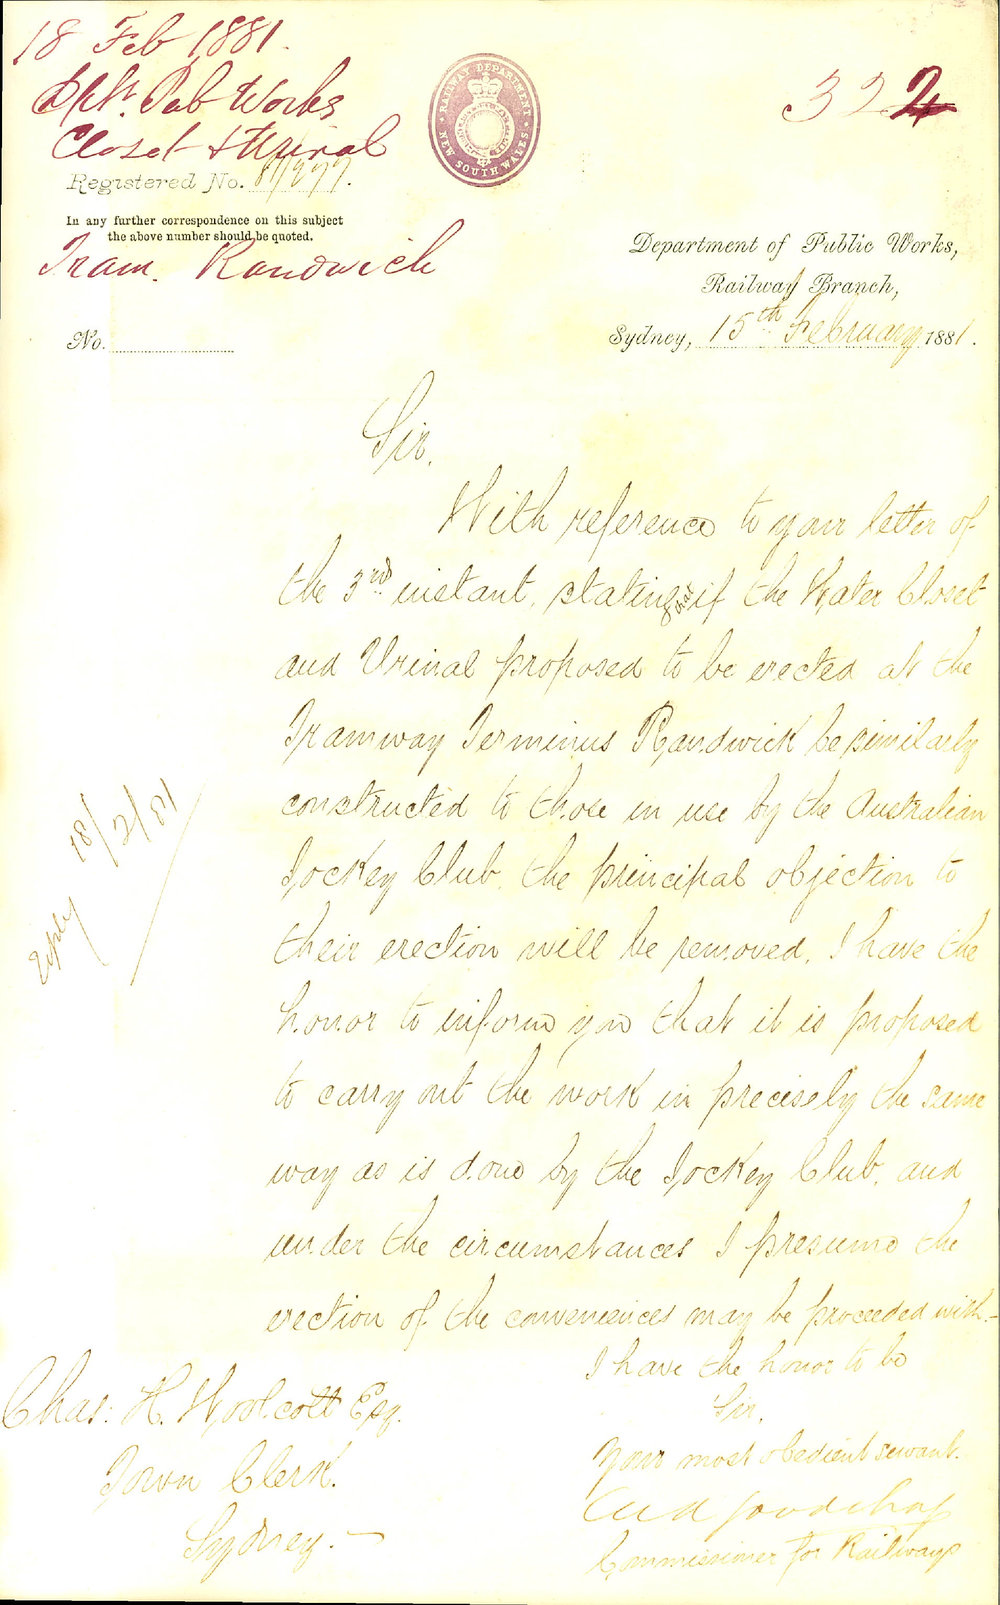 18 Feb 1881.
Dpt. Pub Works
Closet & Urinal
Registered No. 81/277.
In any further correspondence on this subject
the above number should be quoted.
Tram. Randwich
322
RAILWAY DEPARTMENT
NEW SOUTH WALES
Department of Public Works,
Railway Branch,
Sydney, 15th February 1881.
No.
Sir,
With reference to your letter of
the 3rd instant, stating that if the Water Closet
and Urinal proposed to be erected at the
Tramway Terminus Randwick be similarly
constructed to those in use by the Australian
Jockey Club, the principal objection to
their erection will be removed, I have the
honor to inform you that it is proposed
to carry out the work in precisely the same
way as is done by the Jockey Club, and
under the circumstances I presume the
erection of the conveniences may be proceeded with.—
Reply 18/2/81
I have the honor to be
Sir,
Your most obedient servant.
Chas Goodchap
Commissioner for Railways
Chas: H. Woolcott Esq.
Town Clerk.
Sydney.—